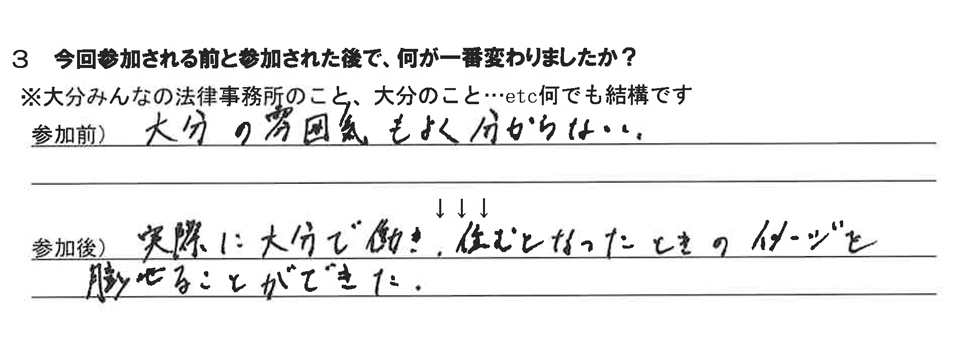 ３　今回参加される前と参加された後で、何が一番変わりましたか？
※大分みんなの法律事務所のこと、大分のこと…etc何でも結構です
参加前）大分の雰囲気もよく分からない。
↓↓↓
参加後）実際に大分で働き、住むとなったときのイメージを
膨せることができた。